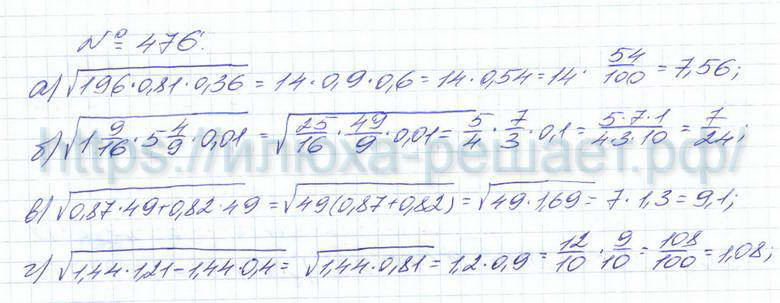 № 476.
а) √196·0,81·0,36 = 14·0,9·0,6 = 14·0,54 = 14· 54/100 = 7,56;
б) √1 9/16 · 5 4/9 · 0,01 = √25/16 · 49/9 · 0,01 = 5/4 · 7/3 · 0,1 = 5·7·1/4·3·10 = 7/24;
https://илюха-решает.рф/
в) √0,87·49+0,82·49 = √49(0,87+0,82) = √49·1,69 = 7·1,3 = 9,1;
г) √1,44·1,21-1,44·0,4 = √1,44·0,81 = 1,2·0,9 = 12/10 · 9/10 = 108/100 = 1,08;